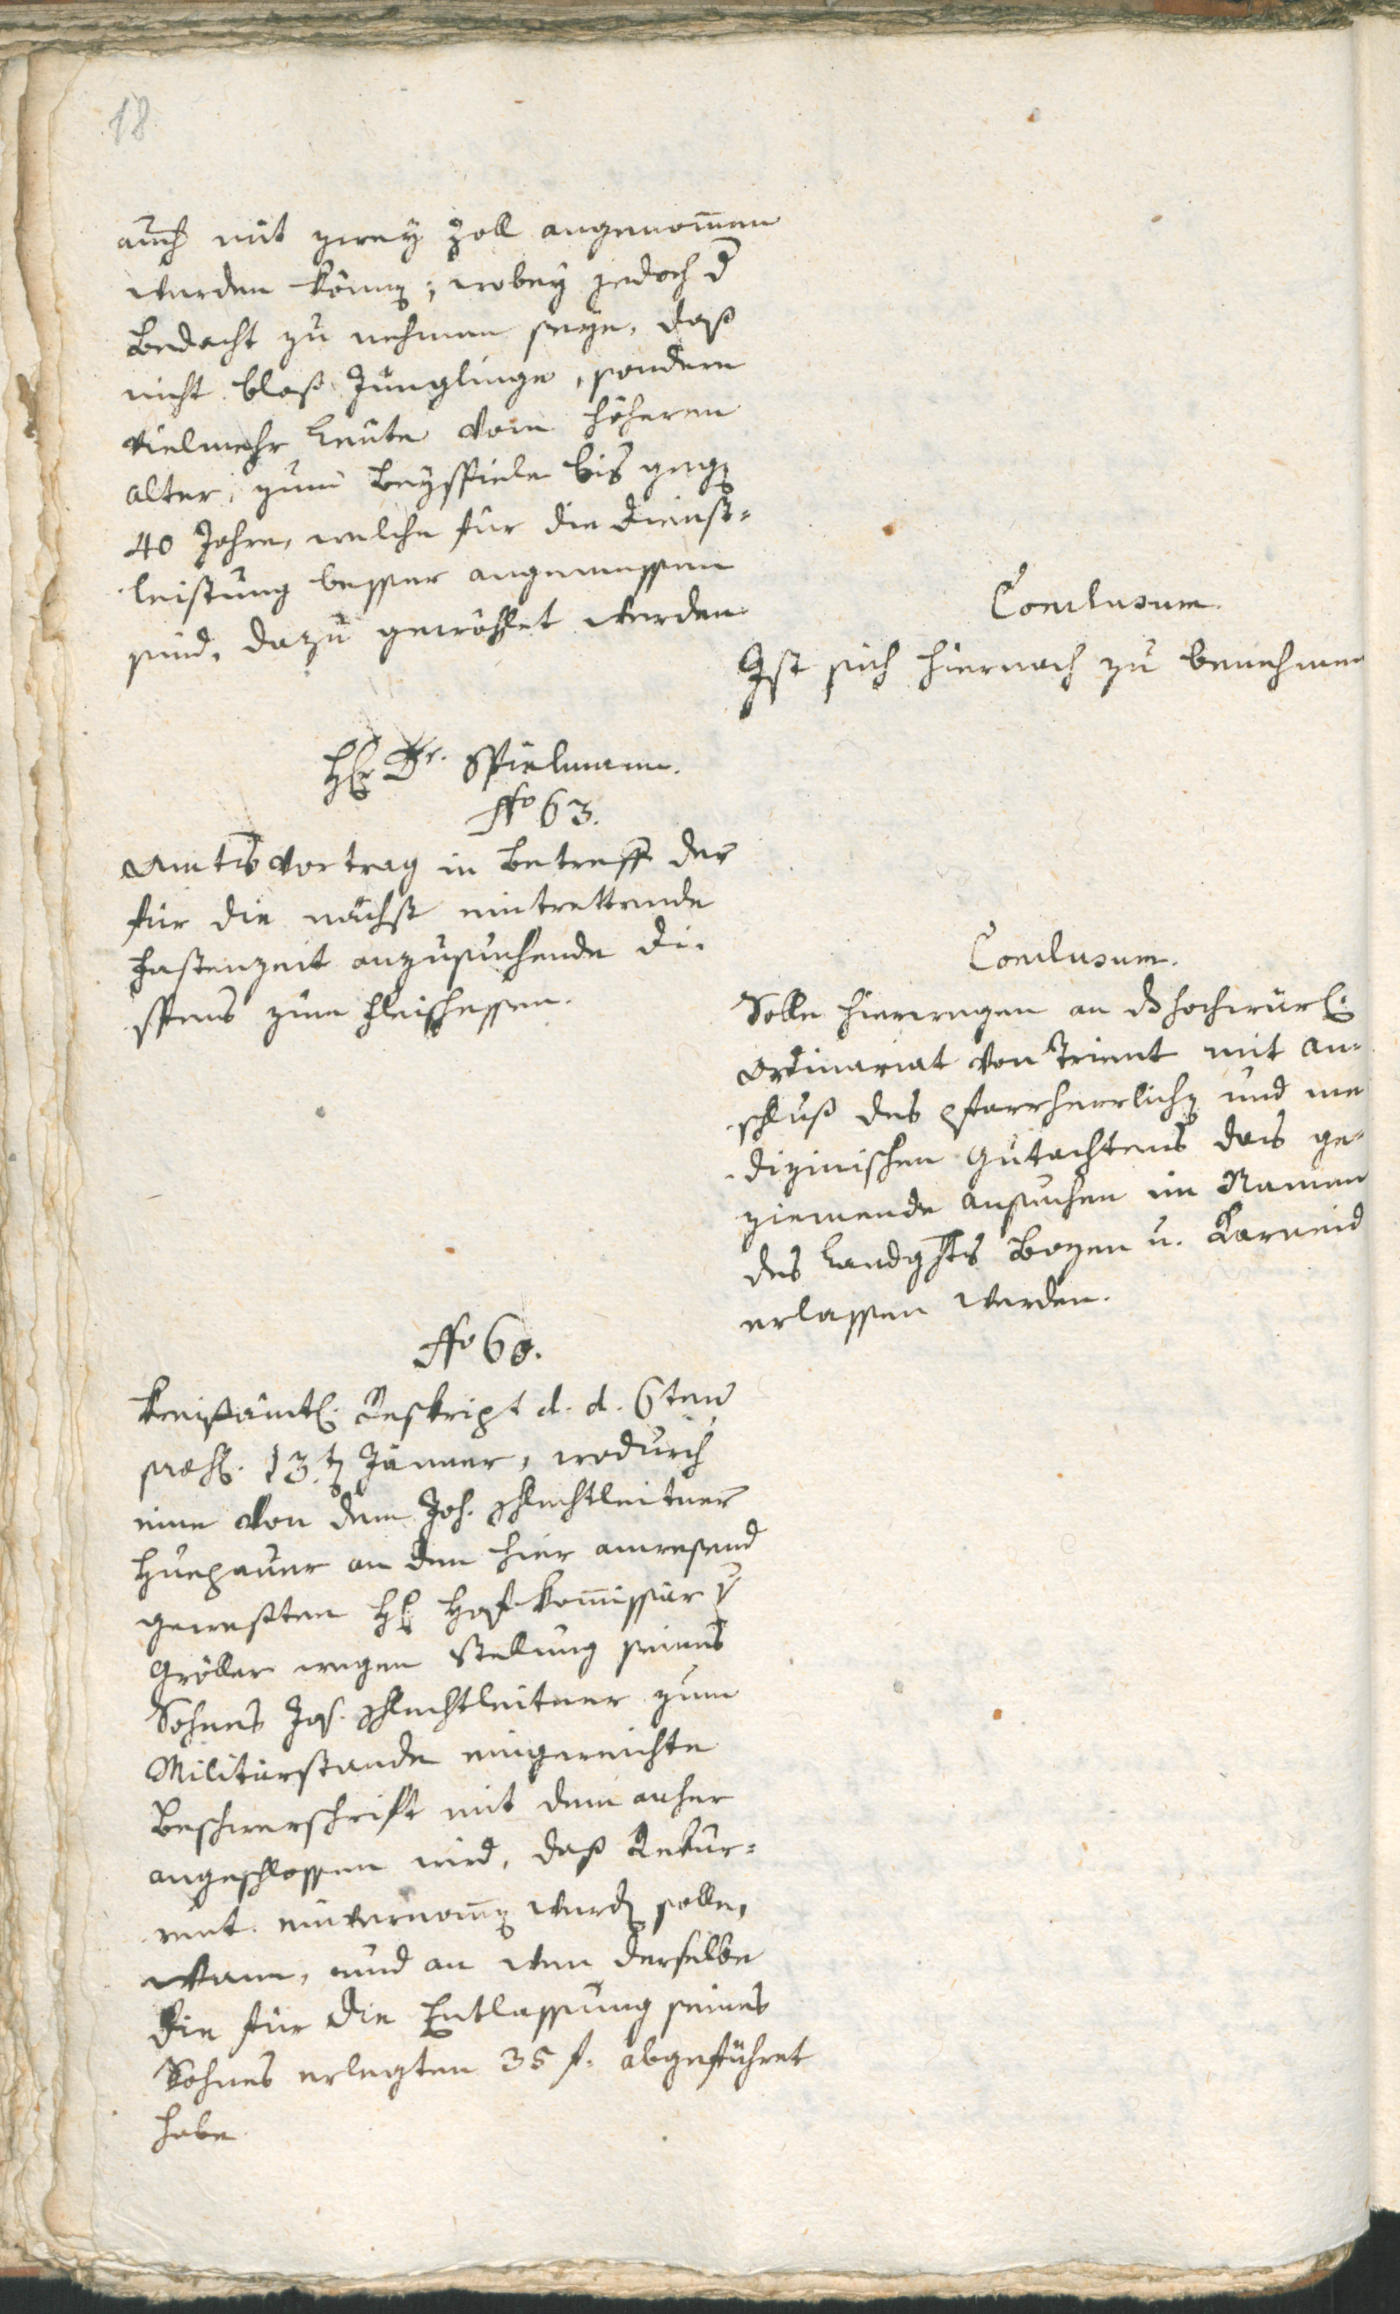 18
auch mit zwey Zoll angenom̅en
werden könne; wobey jedoch der
Bedacht zu nehmen seye, daß
nicht bloß Jünglinge, sondern
vielmehr Leute vom höheren
alter, zum Beyspiele bis gegen
40 Jahre, welche für die Dienst=
leistung besser angemessen
sind, dazu gewählet werden
Conclusum.
Ist sich hiernach zu benehmen
Hr Dr. Spielmann.
No 63.
Amtsvortrag in Betreff der
für die nächst eintrettende
Fastenzeit anzusuchende Di=
spens zum Fleischessen.
Conclusum.
Solle hierwegen an das hochwürl.
Ordinariat von Trient mit An=
schluß des pfarrherrlichen und me
dizinischen Gutachtens das ge=
ziemende Ansuchen im Namen
des Landgchts Bozen u. Karneid
erlassen werden.
No 60.
Kreisämtl. Reskript d. d. 6ten
præs. 13ten Jänner, wodurch
eine von dem Joh. Schlechtleitner
an den hier anwesend
gewesten Hl Hofkom̅issär v
Gröller wegen Stellung seines
Sohnes Jos. Schlechtleitner zum
Militärstande eingereichte
Beschwerschrift mit dem anher
angeschlossen wird, daß Rekur=
rent einvernom̅en werden solle,
wann, und an wen derselbe
die für die Entlassung seines
Sohnes erlegten 35 f. abgeführet
habe